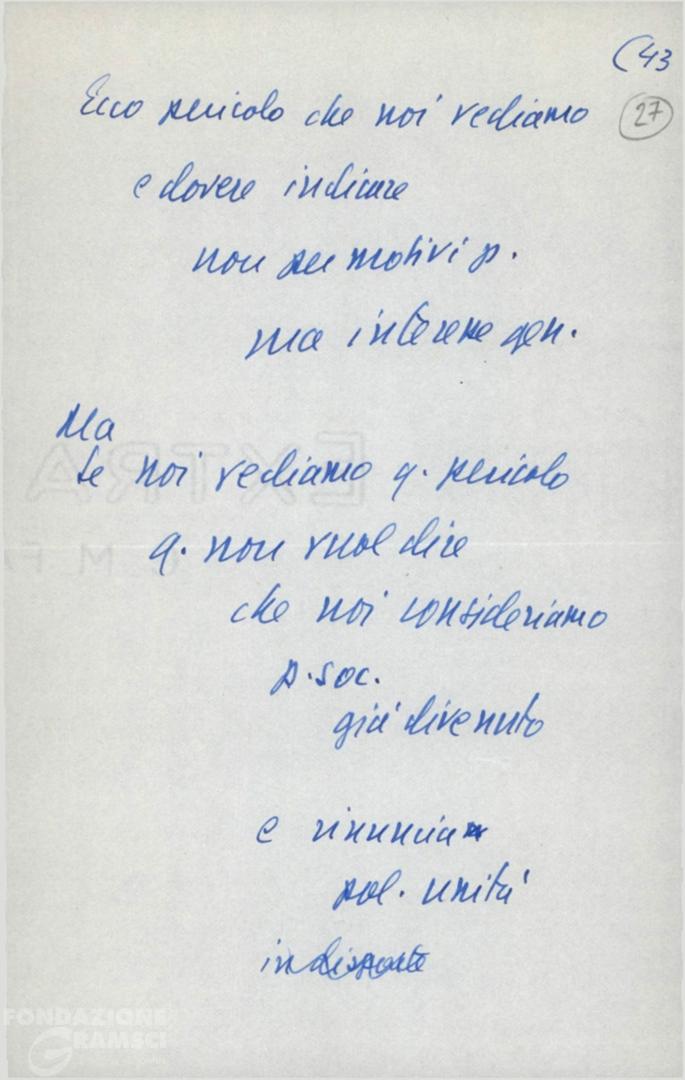 (43
27
Ecco pericolo che noi vediamo
e dovere indicare
non per motivi p.
ma interesse gen.
Ma
se noi vediamo q. pericolo
q. non vuol dire
che noi consideriamo
p. soc.
già divenuto
e rinuncia
pol. unità
EXTRA
FONDAZIONE
GRAMSCI